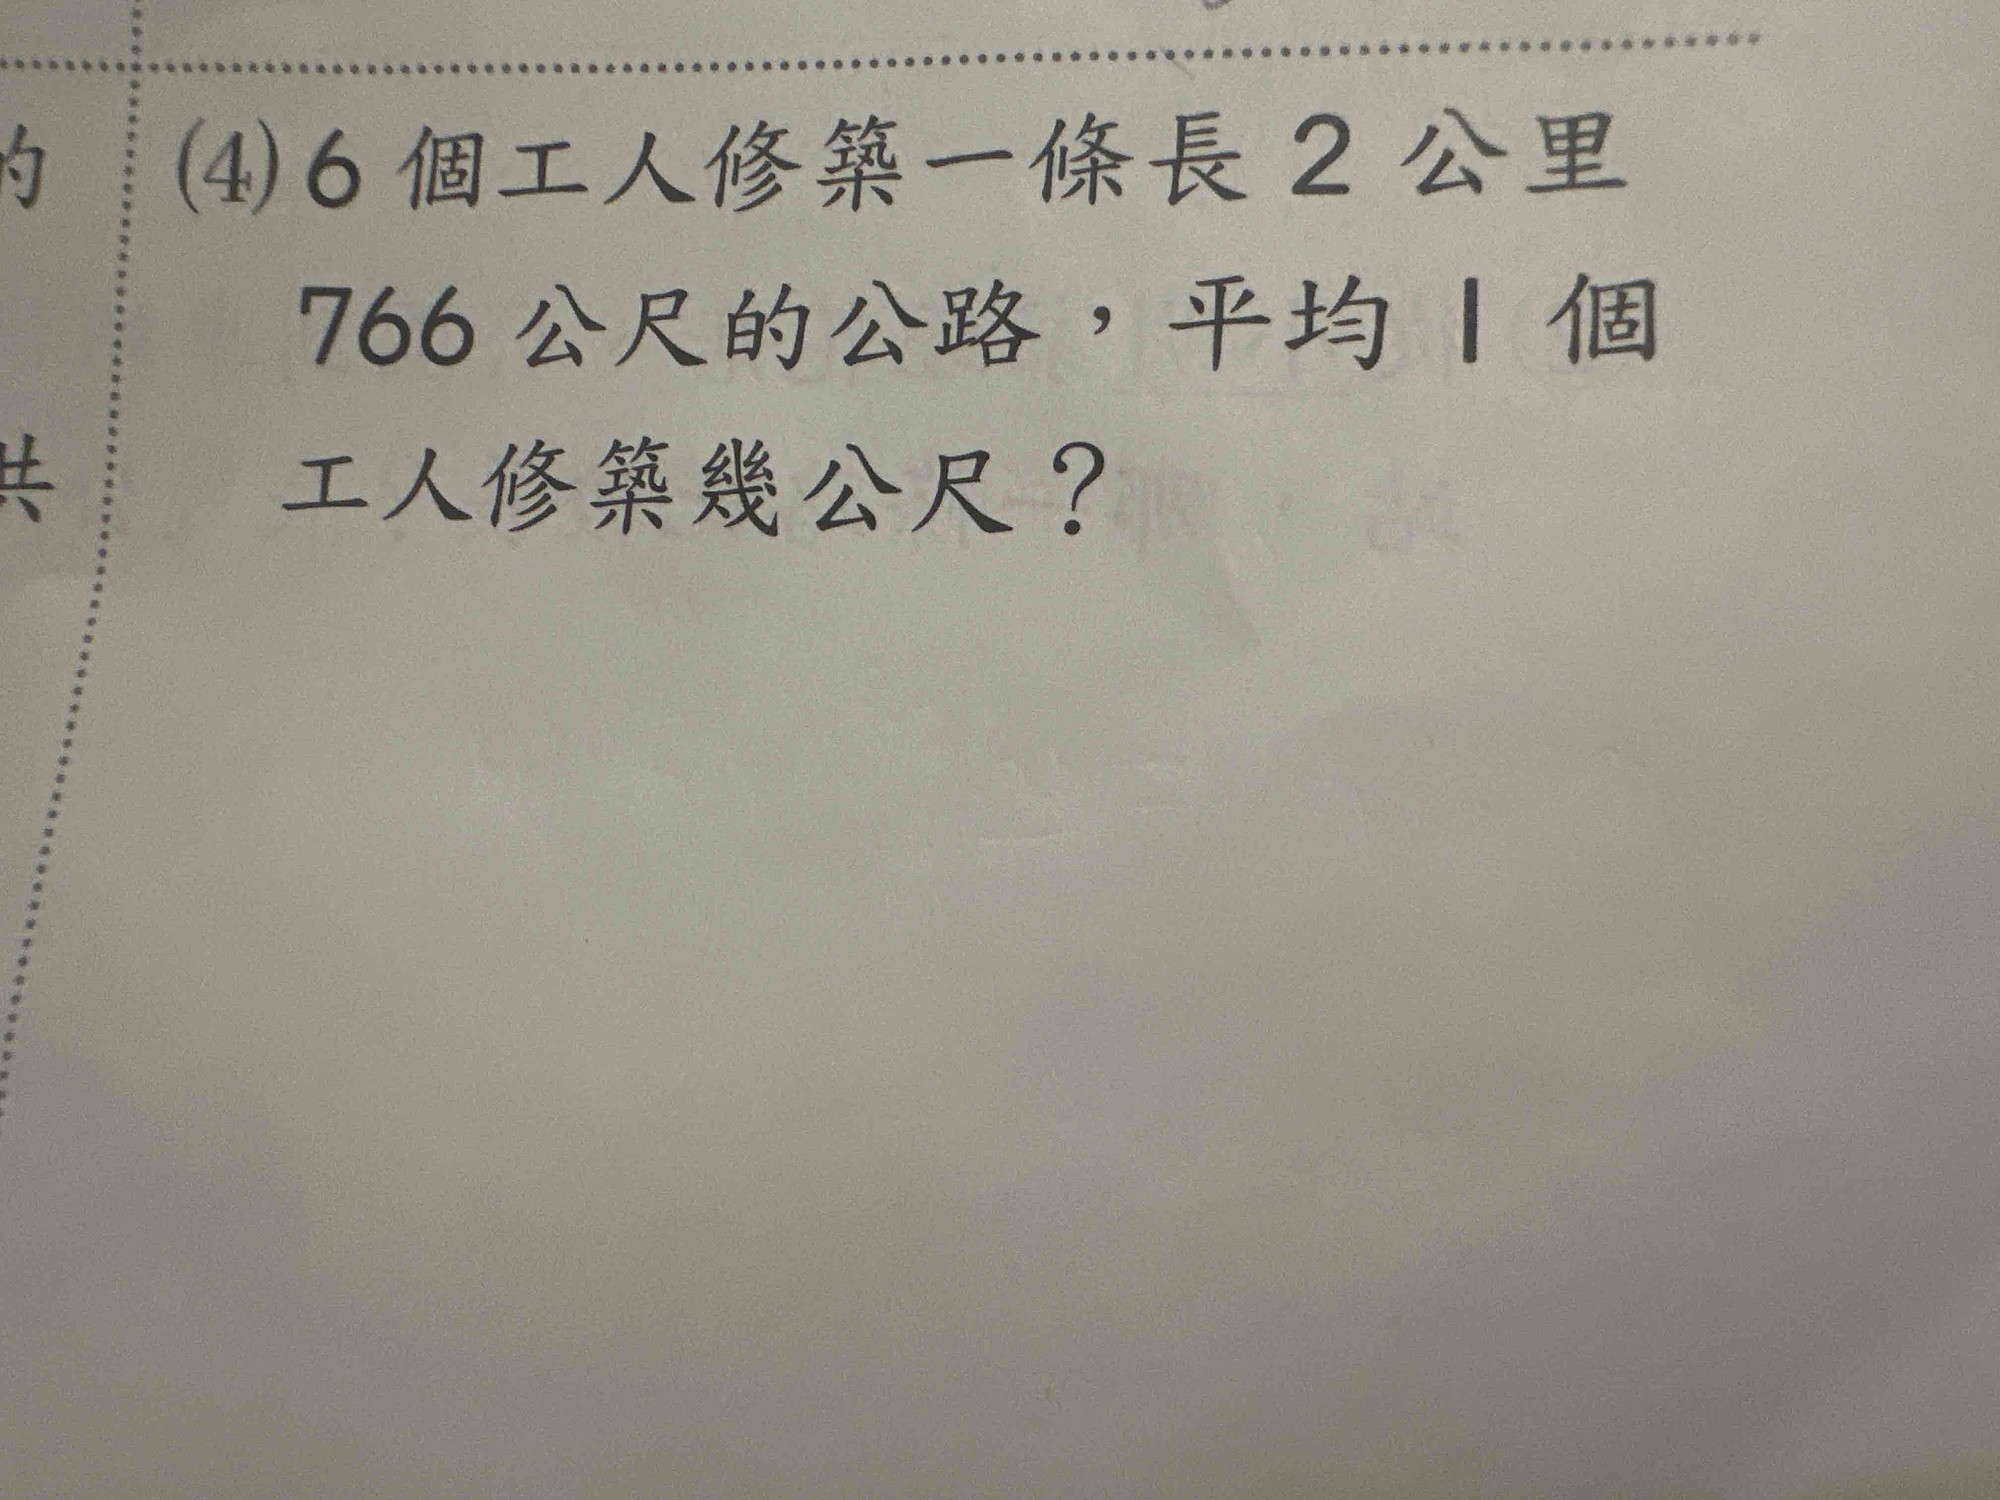 的
共
(4) 6 個工人修築一條長 2 公里
766 公尺的公路，平均 1 個
工人修築幾公尺？